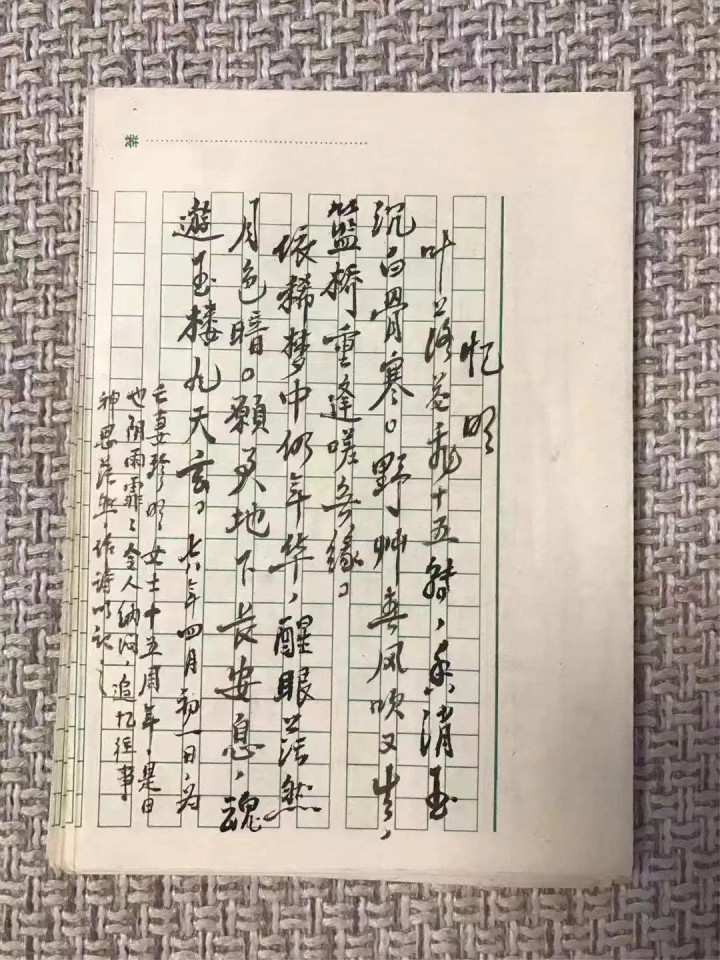 忆明
叶落花飛十五转，香消玉
沉白骨寒。野艸春风吹又生，
篮桥重逢嗟无缘。
依稀梦中仍年华，醒眼茫然
月色暗。願君地下长安息，魂
遊玉楼九天玄。七八年四月初一日，为
亡妻明女士十五周年，是日
也阴雨霏々令人纳闷，追忆往事
神思茫然，作诗以记之
装